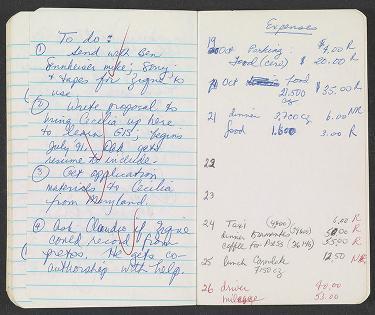 To do:
① Send with Ben
Sennheiser mike; Sony
+ tapes for Zigue to
use
② Write proposal to
bring Cecilia up here
to learn GIS; begins
July 91. Ask
resume to include.
③ Get application
materials to Cecilia
from Maryland.
④ Ask Claudio if Zigue
could record from
He gets co-
authorship with help.
Expenses
19 Oct Parking $4.00 R
Food (Cena) $20.00 R
Oct food $35.00 R
21,500
cz
21 dinner 2,700 cz 6.00 NR
food 1.800 3.00 R
22
23
24 Taxi 6.00 R
dinner R
coffee for Press R
25 lunch 12.50 NR
7150 cz
26 driver 40.00
mileage 53.00